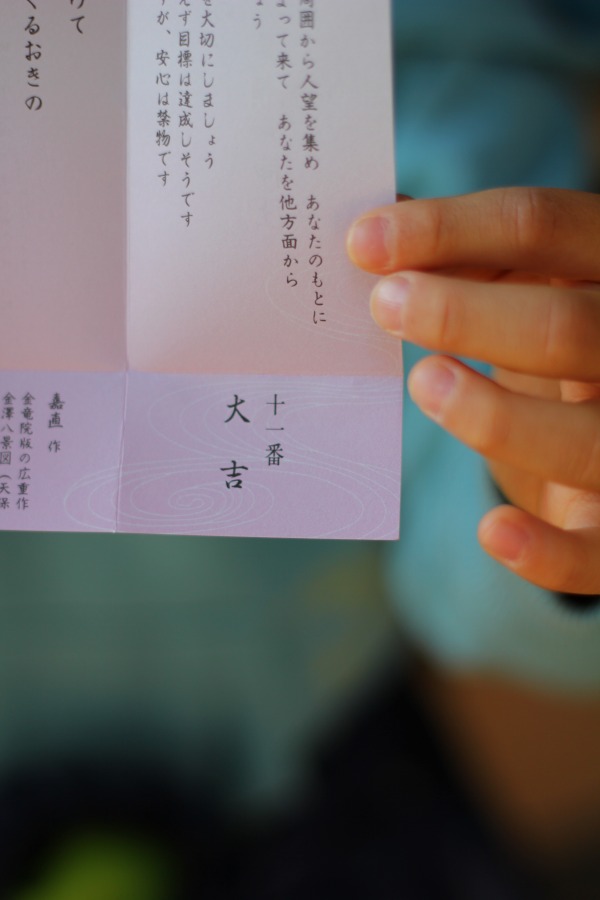 周囲から人望を集め　あなたのもとに
よって来て　あなたを他方面から
ょう
を大切にしましょう
えず目標は達成しそうです
すが、安心は禁物です
けて
くるおきの
十一番
大吉
嘉直 作
金竜院版の広重作
金澤八景図（天保